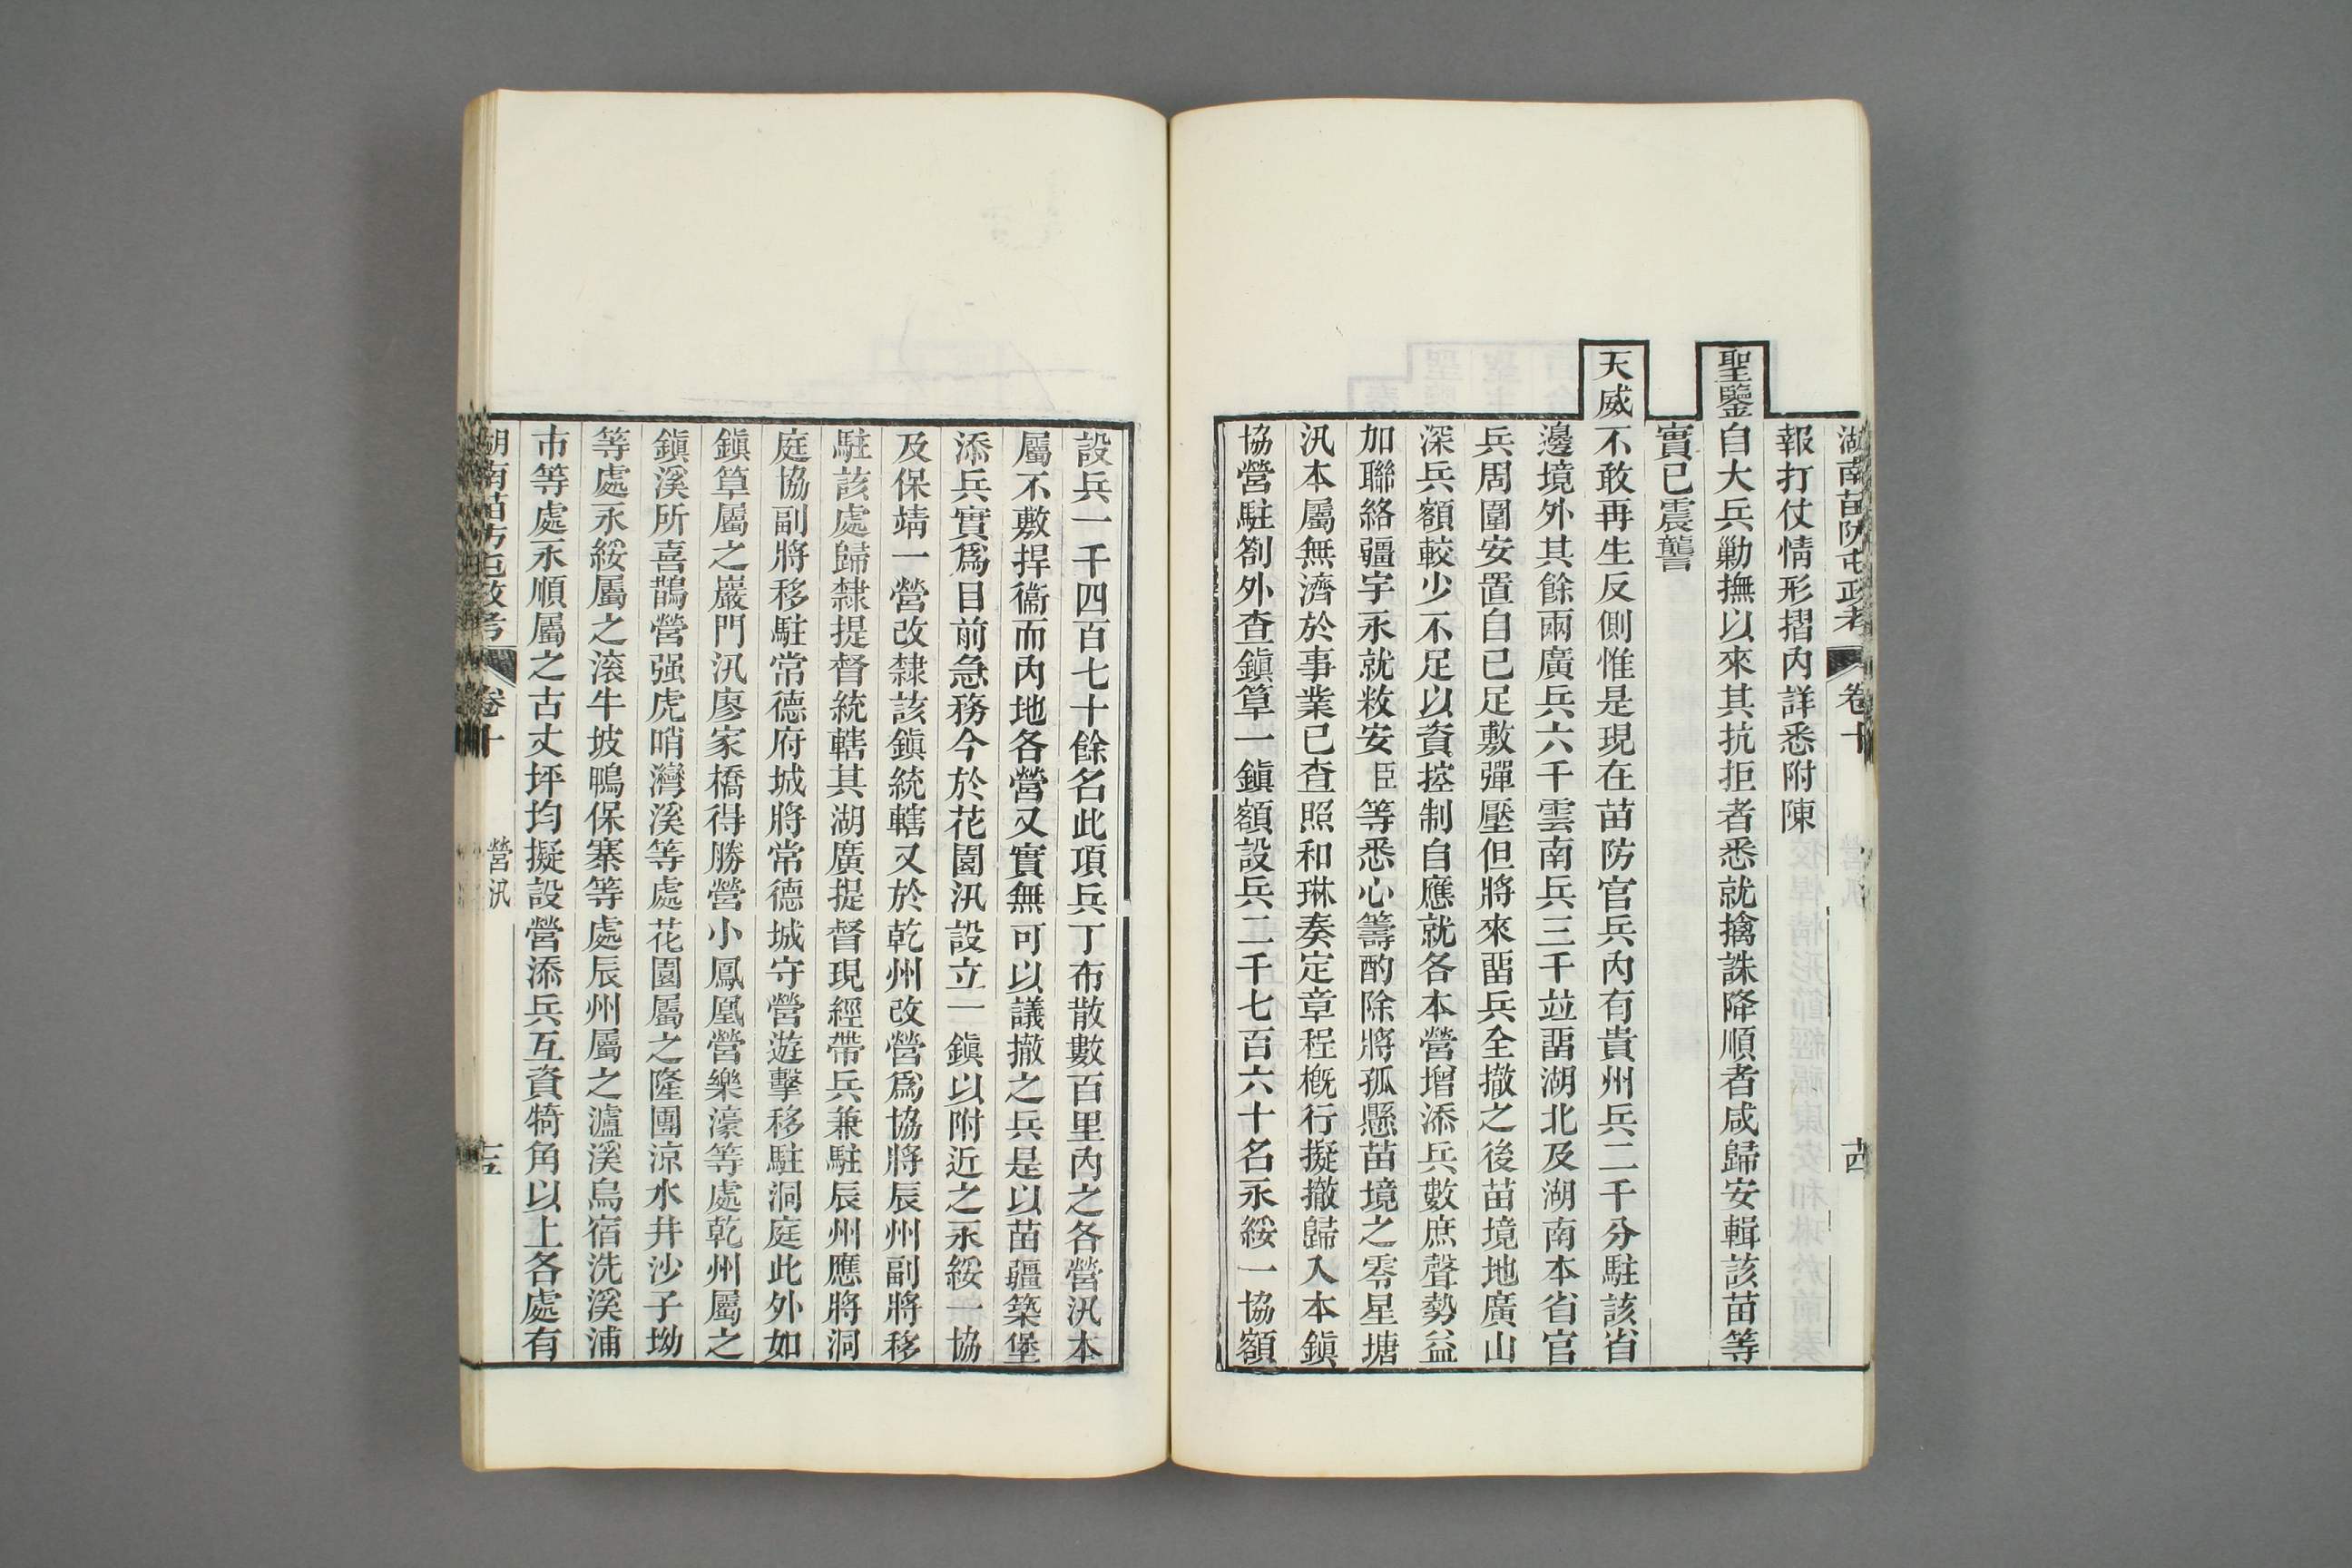 湖南苗防屯政考 卷十 十四
報打仗情形摺內詳悉附陳
聖鑒自大兵勦撫以來其抗拒者悉就擒誅降順者咸歸安輯該苗等
實已震讋
天威不敢再生反側惟是現在苗防官兵內有貴州兵二千分駐該省
邊境外其餘兩廣兵六千雲南兵三千竝畱湖北及湖南本省官
兵周圍安置自已足敷彈壓但將來畱兵全撤之後苗境地廣山
深兵額較少不足以資控制自應就各本營增添兵數庶聲勢益
加聯絡疆宇永就敉安臣等悉心籌酌除將孤懸苗境之零星塘
汛本屬無濟於事業已查照和琳奏定章程槪行擬撤歸入本鎭
協營駐劄外查鎭筸一鎭額設兵二千七百六十名永綏一協額
設兵一千四百七十餘名此項兵丁布散數百里內之各營汛本
屬不敷捍衞而內地各營又實無可以議撤之兵是以苗疆築堡
添兵實爲目前急務今於花園汛設立一鎭以附近之永綏一協
及保靖一營改隸該鎭統轄又於乾州改營爲協將辰州副將移
駐該處歸隸提督統轄其湖廣提督現經帶兵兼駐辰州應將洞
庭協副將移駐常德府城將常德城守營遊擊移駐洞庭此外如
鎭筸屬之巖門汛廖家橋得勝營小鳳凰營樂濠等處乾州屬之
鎭溪所喜鵲營强虎哨灣溪等處花園屬之隆團涼水井沙子坳
等處永綏屬之滚牛坡鴨保寨等處辰州屬之瀘溪烏宿洗溪浦
市等處永順屬之古丈坪均擬設營添兵互資犄角以上各處有
湖南苗防屯政考 卷十 營汛 十五